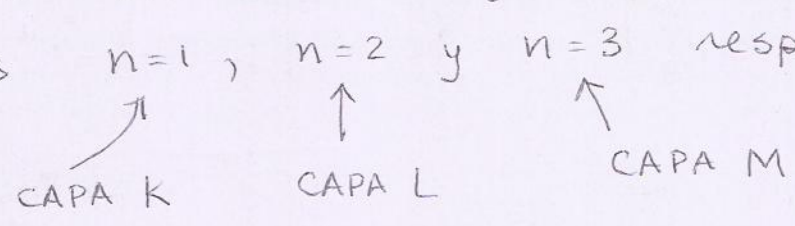 n=1, n=2 y n=3 resp
CAPA K CAPA L CAPA M